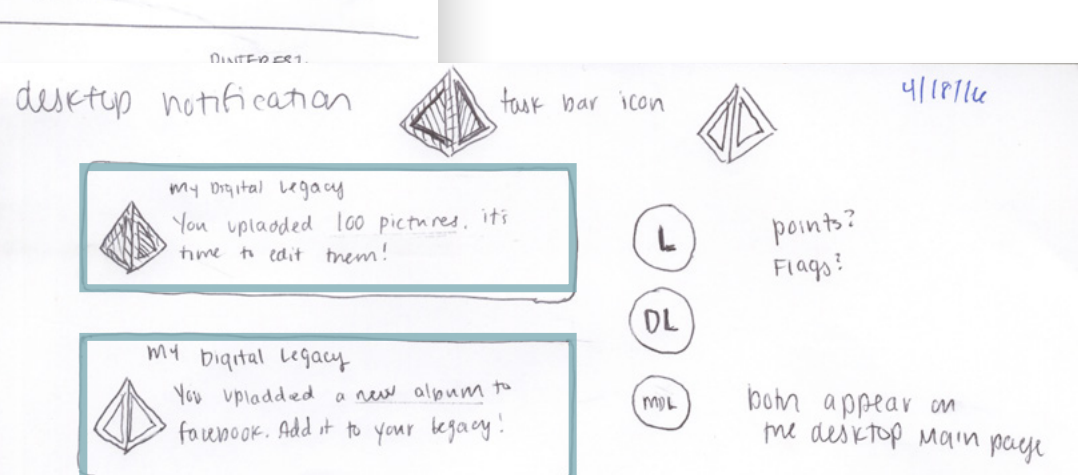 PINTEREST.
desktop notification
task bar icon
4/18/16
My Digital Legacy
You uplaoded 100 pictures. it's
time to edit them!
L
points?
Flags?
DL
My Digital Legacy
You uplaoded a new album to
facebook. Add it to your legacy!
MDL
both appear on
the desktop main page